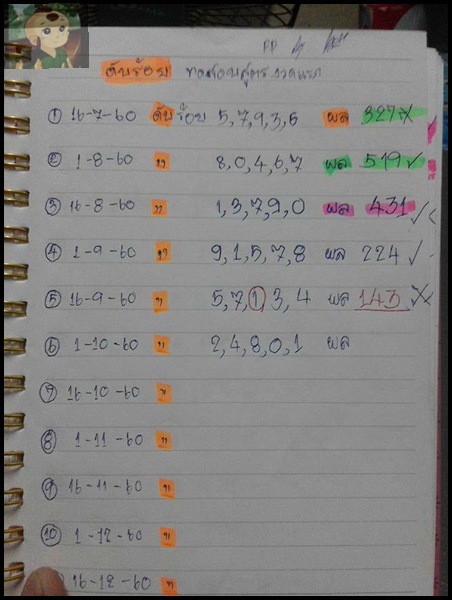 ดับร้อย ทดสอบสูตร งวดแรก
① 16-7-60 ดับร้อย 5,7,9,3,6 ผล 327 ✗
② 1-8-60 " 8,0,4,6,7 ผล 519 ✓
③ 16-8-60 " 1,3,7,9,0 ผล 431 ✓
④ 1-9-60 " 9,1,5,7,8 ผล 224 ✓
⑤ 16-9-60 " 5,7,1,3,4 ผล 143 ✗
⑥ 1-10-60 " 2,4,8,0,1 ผล
⑦ 16-10-60 "
⑧ 1-11-60 "
⑨ 16-11-60 "
⑩ 1-12-60 "
16-12-60 "